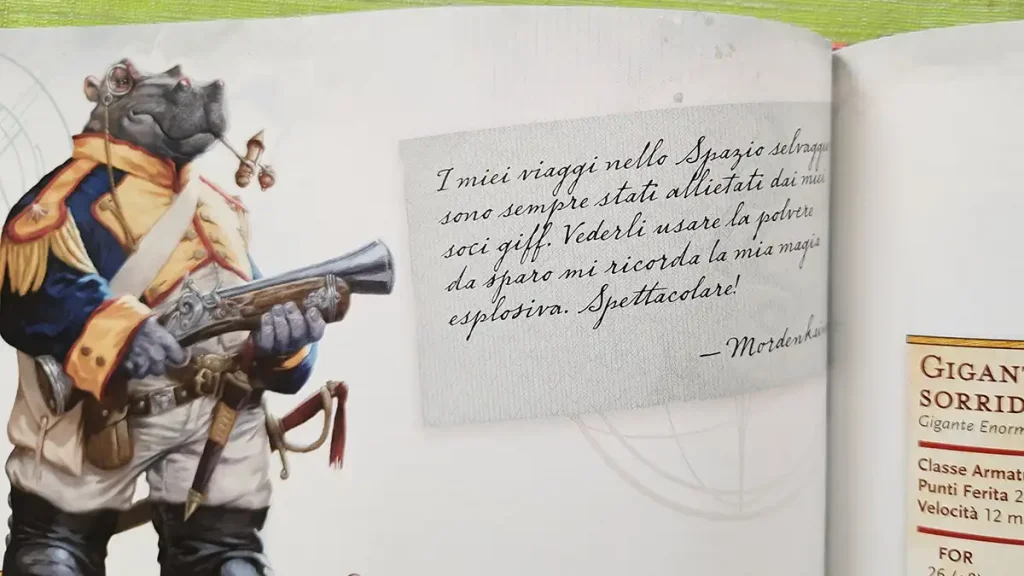 I miei viaggi nello Spazio selvaggio
sono sempre stati allietati dai miei
soci giff. Vederli usare la polvere
da sparo mi ricorda la mia magia
esplosiva. Spettacolare!
— Morden
GIGAN
SORRID
Gigante Enorm
Classe Armat
Punti Ferita 2
Velocità 12 m
FOR